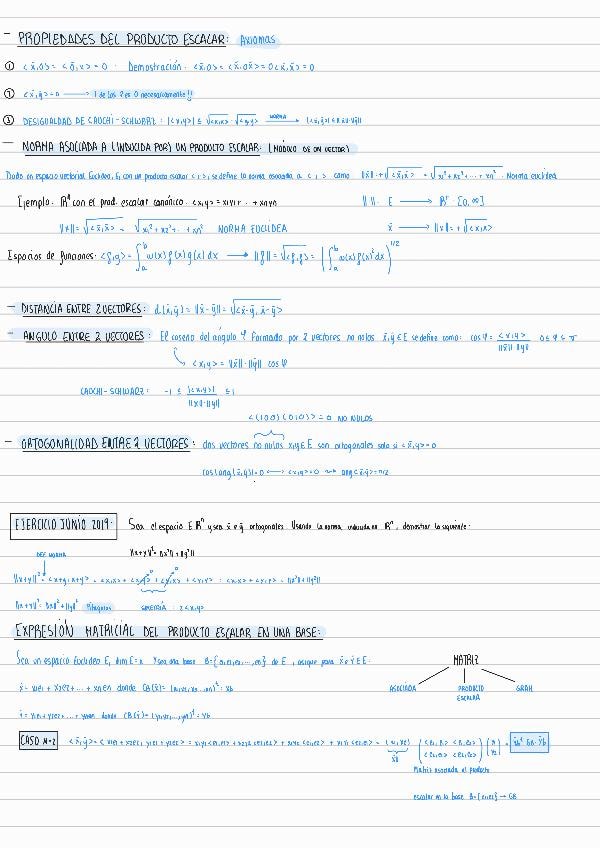 - PROPIEDADES DEL PRODUCTO ESCALAR: Axiomas
① <x̄,0> = <0̄,x> = 0 · Demostración: <x̄,0> = <x̄,0x̄> = 0<x̄,x̄> = 0
② <x̄,ȳ> = 0 ⟶ 1 de los 2 es 0 necesariamente!!
③ DESIGUALDAD DE CAUCHI-SCHWARZ: |<x,y>| ≤ √<x,x> · √<y,y> NORMA ⟶ |<x,y>| ≤ ||x|| · ||y||
- NORMA ASOCIADA A (INDUCIDA POR) UN PRODUCTO ESCALAR: (MÓDULO DE UN VECTOR)
Dado un espacio vectorial Euclídeo, E, con un producto escalar < , >, se define la norma asociada a < , > como ||x̄|| = +√<x̄,x̄> = √x₁² + x₂² + ... + xn² · Norma euclídea
Ejemplo: ℝⁿ con el prod. escalar canónico: <x,y> = x₁y₁ + ... + xnyn || ||: E ⟶ ℝ⁺ [0,∞]
||x|| = √<x̄,x̄> = √x₁² + x₂² + ... xn² NORMA EUCLÍDEA x̄ ⟶ ||x|| = +√<x,x>
Espacios de funciones: <f,g> = ∫ₐᵇ w(x) f(x) g(x) dx ⟶ ||f|| = √<f,f> = (∫ₐᵇ w(x) f(x)² dx)^1/2
- DISTANCIA ENTRE 2 VECTORES: d(x̄,ȳ) = ||x̄-ȳ|| = √<x̄-ȳ, x̄-ȳ>
- ÁNGULO ENTRE 2 VECTORES: El coseno del ángulo φ formado por 2 vectores no nulos x̄,ȳ ∈ E se define como: cos φ = <x,y> / ||x|| ||y|| 0 ≤ φ ≤ π
<x,y> = ||x̄|| · ||ȳ|| cos φ
CAUCHI-SCHWARZ: -1 ≤ |<x,y>| / ||x|| · ||y|| ≤ 1
<(1 0 0) (0 1 0)> = 0 NO NULOS
- ORTOGONALIDAD ENTRE 2 VECTORES: dos vectores no nulos x,y ∈ E son ortogonales solo si <x̄,ȳ> = 0
cos(ang(x̄,ȳ)) = 0 ⟷ <x,y> = 0 ⟶ ang<x̄,ȳ> = π/2
EJERCICIO JUNIO 2019: Sea el espacio E ℝⁿ y sea x̄ e ȳ ortogonales. Usando la norma inducida en ℝⁿ, demostrar la siguiente:
||x+y||² = ||x²|| + ||y²||
DEF NORMA
||x+y||² = <x+y, x+y> = <x,x> + <x,y> + <y,x> + <y,y> = <x,x> + <y,y> = ||x²|| + ||y²||
||x+y||² = ||x||² + ||y||² Pitágoras SIMETRÍA: 2<x,y>
EXPRESIÓN MATRICIAL DEL PRODUCTO ESCALAR EN UNA BASE:
Sea un espacio Euclídeo E, dim E = n y sea una base B = {e₁,e₂,...,en} de E, así que para x̄ e ȳ ∈ E: MATRIZ
x̄ = x₁e₁ + x₂e₂ + ... + xn en donde CB(x̄) = (x₁,x₂,...,xn)ᵗ = xb ASOCIADA PRODUCTO ESCALAR GRAM
ȳ = y₁e₁ + y₂e₂ + ... + ynen donde CB(ȳ) = (y₁,y₂,...,yn)ᵗ = yb
CASO N=2 <x̄,ȳ> = <x₁e₁ + x₂e₂, y₁e₁ + y₂e₂> = x₁y₁<e₁,e₁> + x₂y₂<e₂,e₂> + x₁y₂<e₁,e₂> + x₂y₁<e₂,e₁> = (x₁,x₂) (<e₁,e₁> <e₁,e₂> <e₂,e₁> <e₂,e₂>) (y₁ y₂) = x̄bᵗ GB · ȳb
Matriz asociada al producto
escalar en la base B = {e₁,e₂} → GB